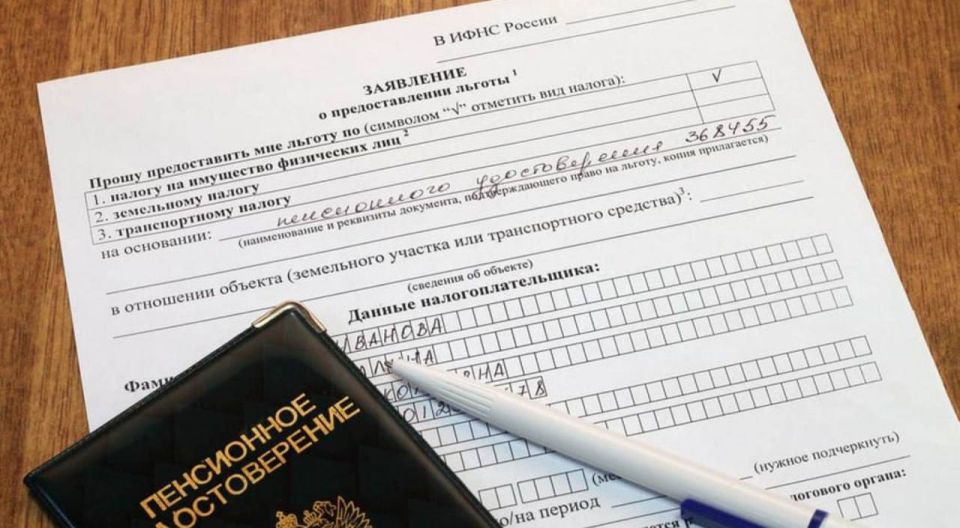 В ИФНС России
ЗАЯВЛЕНИЕ
о предоставлении льготы 1
Прошу предоставить мне льготу по (символом “√” отметить вид налога):
1. налогу на имущество физических лиц 2 √
2. земельному налогу
3. транспортному налогу
на основании: пенсионного удостоверения 368455
(наименование и реквизиты документа, подтверждающего право на льготу, копия прилагается)
в отношении объекта (земельного участка или транспортного средства)3:
(сведения об объекте)
Данные налогоплательщика:
ВАНОВА
Фами
НА
78
(нужное подчеркнуть)
о/на период
логового органа:
ПЕНСИОННОЕ
ДОСТОВЕРЕНИЕ